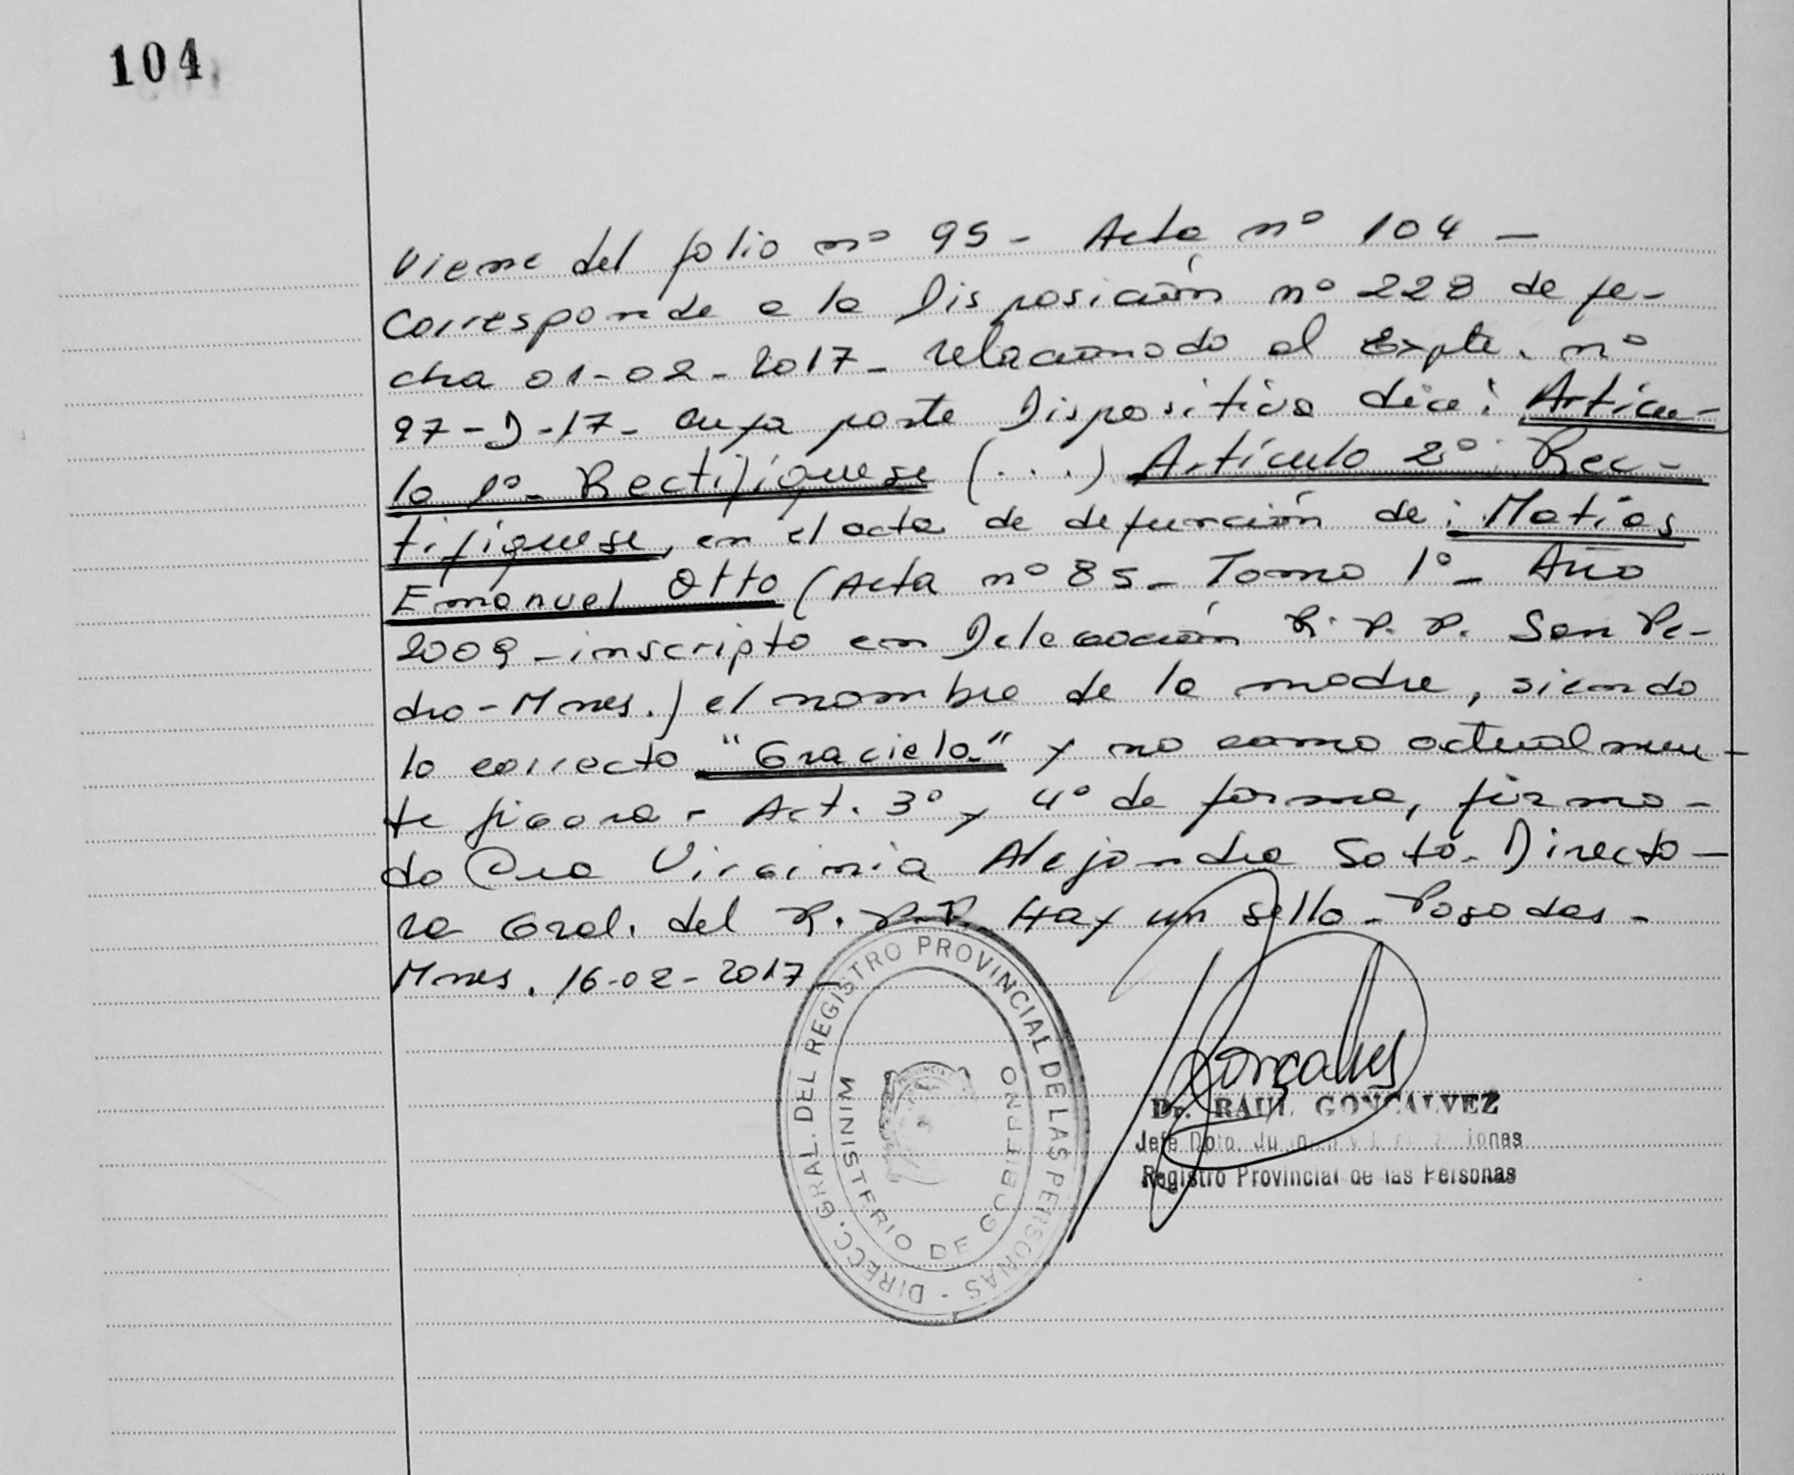 104
Viene del folio nº 95 - Acta nº 104 -
Corresponde a la Disposición nº 228 de fe-
cha 01-02-2017- relacionado al Expte. nº
97-D-17- cuya parte Dispositiva dice: Artícu-
lo 1º- Rectifíquese (...) Artículo 2º: Rec-
tifíquese, en el acta de defunción de: Matías
Emanuel Otto (Acta nº 85- Tomo 1º- Año
2009-inscripto en Delegación R.P.P. San Pe-
dro-Mnes.) el nombre de la madre, siendo
lo correcto "Graciela" y no como actualmen-
te figura - Art. 3º y 4º de forma, firma-
do Dra Virginia Alejandra Soto- Directo-
ra Gral. del R.P.P. Hay un sello- Posadas-
Mnes. 16-02-2017-
DIRECC. GRAL. DEL REGISTRO PROVINCIAL DE LAS PERSONAS -
MINISTERIO DE GOBIERNO
PROVINCIA
Gonçalves
Dr. RAUL GONCALVEZ
Jefe Dpto.
Registro Provincial de las Personas